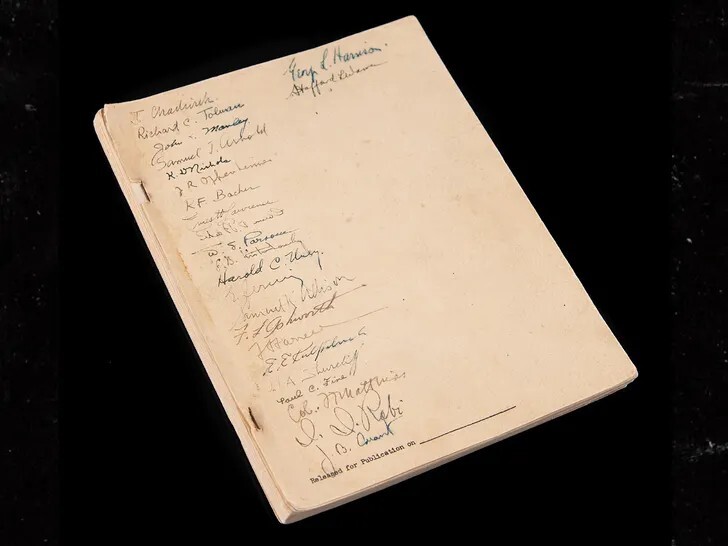 Geo. L. Harrison.
Stafford Warren
J. Chadwick.
Richard C. Tolman
John Manley
Samuel T. Arnold
K D Nichols
J R Oppenheimer
R F. Bacher
Lawrence
W. S. Parsons
Harold C. Urey.
E. Fermi
Samuel K Allison
F. L. Ashworth
E. E. Kirkpatrick
Paul C. Fine
Col. F. Matthias
I. I. Rabi
J. B. Conant
Released for Publication on